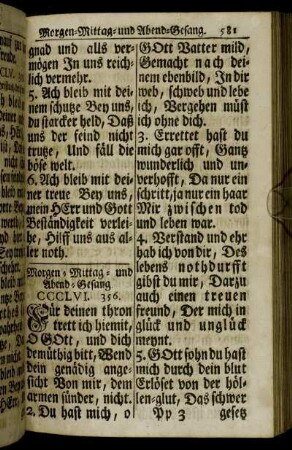 Morgen-Mittag- und Abend-Gesang. 581
gnad und alls ver-
mögen In uns reich-
lich vermehr.
5. Ach bleib mit dei-
nem schutze Bey uns,
du starcker held, Daß
uns der feind nicht
trutze, Und fäll die
böse welt.
6. Ach bleib mit dei-
ner treue Bey uns,
mein HErr und Gott
Beständigkeit verlei-
he, Hilff uns aus al-
ler noth.
Morgen- Mittag- und
Abend-Gesang
CCCLVI. 356.
Für deinen thron
trett ich hiemit,
O GOtt, und dich
demüthig bitt, Wend
dein genädig ange-
sicht Von mir, dem
armen sünder, nicht.
2. Du hast mich, o
GOtt Vatter mild,
Gemacht nach dei-
nem ebenbild, In dir
web, schweb und lebe
ich, Vergehen müst
ich ohne dich.
3. Errettet hast du
mich gar offt, Gantz
wunderlich und un-
verhofft, Da nur ein
schritt, ja nur ein haar
Mir zwischen tod
und leben war.
4. Verstand und ehr
hab ich von dir, Des
lebens nothdurfft
gibst du mir, Darzu
auch einen treuen
freund, Der mich in
glück und unglück
meynt.
5. GOtt sohn du hast
mich durch dein blut
Erlöset von der höl-
len-glut, Das schwer
Pp 3 gesetz